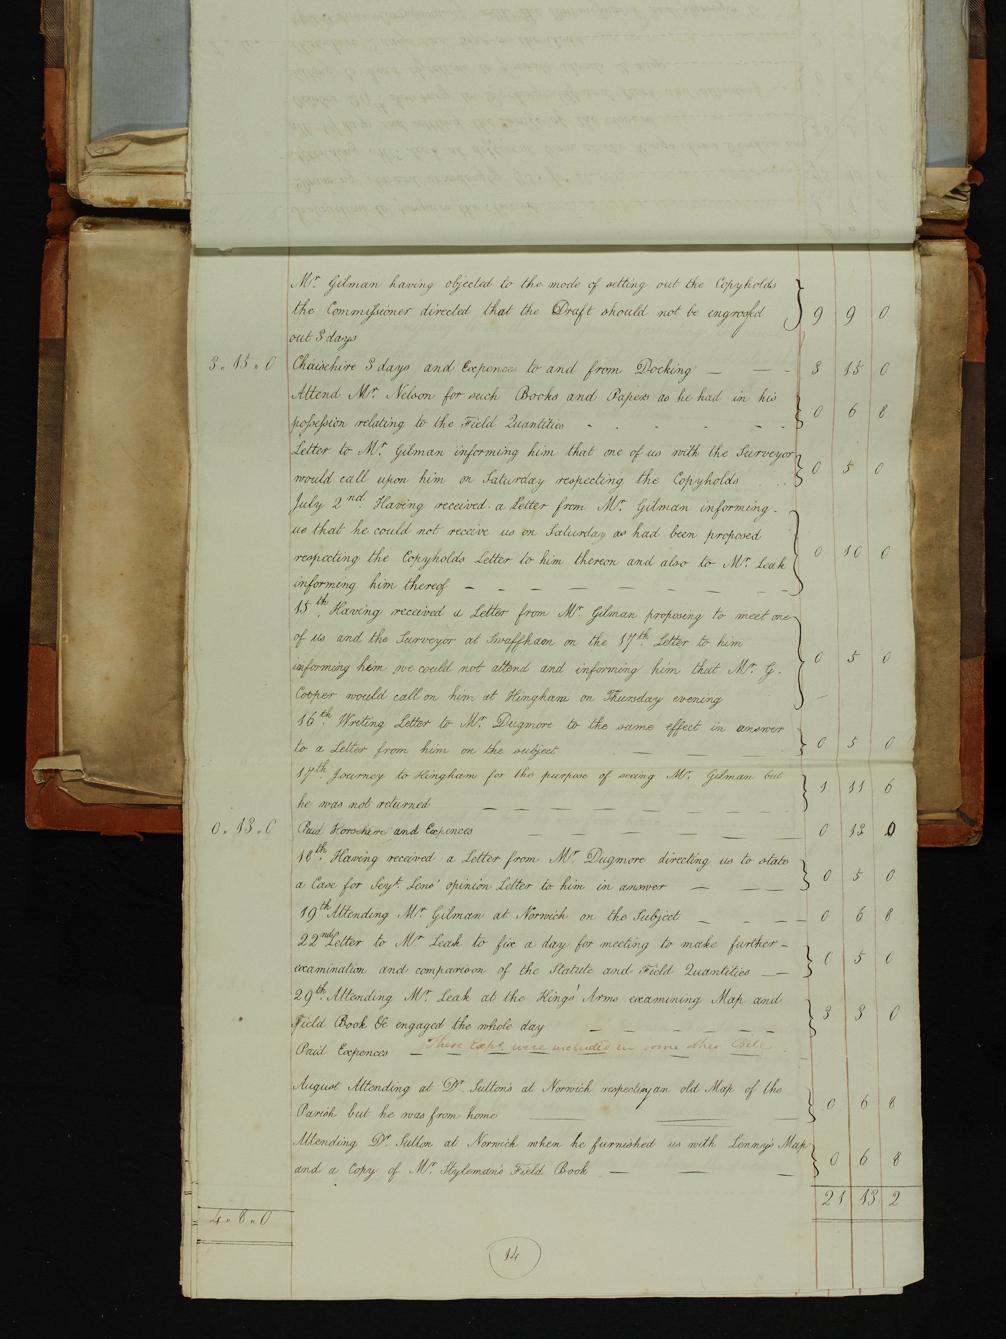 Mr. Gilman having objected to the mode of setting out the Copyholds
the Commissioner directed that the Draft should not be engrossed 9 9 0
out 3 days
3. 15. 0 Chaisehire 3 days and Expences to and from Docking 3 15 0
Attend Mr. Nelson for such Books and Papers as he had in his
possession relating to the Field Quantities 0 6 8
Letter to Mr. Gilman informing him that one of us with the Surveyor
would call upon him on Saturday respecting the Copyholds 0 5 0
July 2nd. Having received a Letter from Mr. Gilman informing
us that he could not receive us on Saturday as had been proposed
respecting the Copyholds Letter to him thereon and also to Mr. Leak 0 10 0
informing him thereof
15th. Having received a Letter from Mr. Gilman proposing to meet one
of us and the Surveyor at Swaffham on the 17th. Letter to him
informing him we could not attend and informing him that Mr. G. 0 5 0
Cooper would call on him at Hingham on Thursday evening
16th. Writing Letter to Mr. Dugmore to the same effect in answer
to a Letter from him on the subject 0 5 0
17th. Journey to Hingham for the purpose of seeing Mr. Gilman but
he was not returned 1 11 6
0. 13. 0 Paid Horsehire and Expences 0 13 0
18th. Having received a Letter from Mr. Dugmore directing us to state
a Case for Serjt. Lens' opinion Letter to him in answer 0 5 0
19th. Attending Mr. Gilman at Norwich on the Subject 0 6 8
22nd Letter to Mr. Leak to fix a day for meeting to make further
examination and comparison of the Statute and Field Quantities 0 5 0
29th. Attending Mr. Leak at the Kings' Arms examining Map and
Field Book &c engaged the whole day 3 3 0
Paid Expences These Exps. were included in some other Bill.
August Attending at Dr. Sutton's at Norwich respecting an old Map of the
Parish but he was from home 0 6 8
Attending Dr. Sutton at Norwich when he furnished us with Lenny's Map
and a Copy of Mr. Styleman's Field Book 0 6 8
21 13 2
4. 8. 0
14